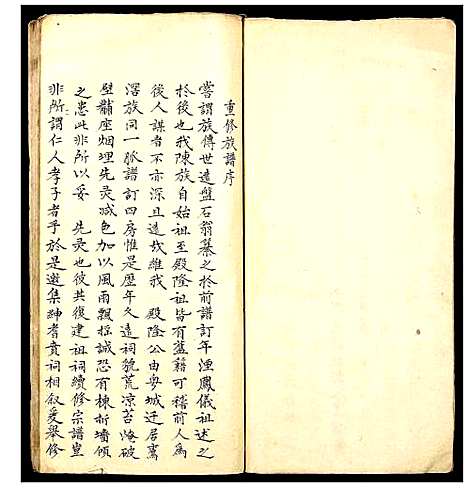 重修族譜序
嘗謂族傳世遠盤石翁纂之於前譜訂年湮鳳儀祖述之
於後也我陳族自始祖至殿隆祖皆有舊籍可稽前人為
後人謀者不亦深且遠哉維我 殿隆公由安城迁居萬
澪族同一脈譜訂四房惟是歷年久遠祠貌荒凉苔掩破
壁黼座烟理先灵减色加以風雨飄搖誠恐有棟折墻傾
之患此非所以妥 先灵也彼共復建祖祠續修宗譜豈
非所謂仁人孝子者乎於是邀集紳耆賁祠相叙爰舉修